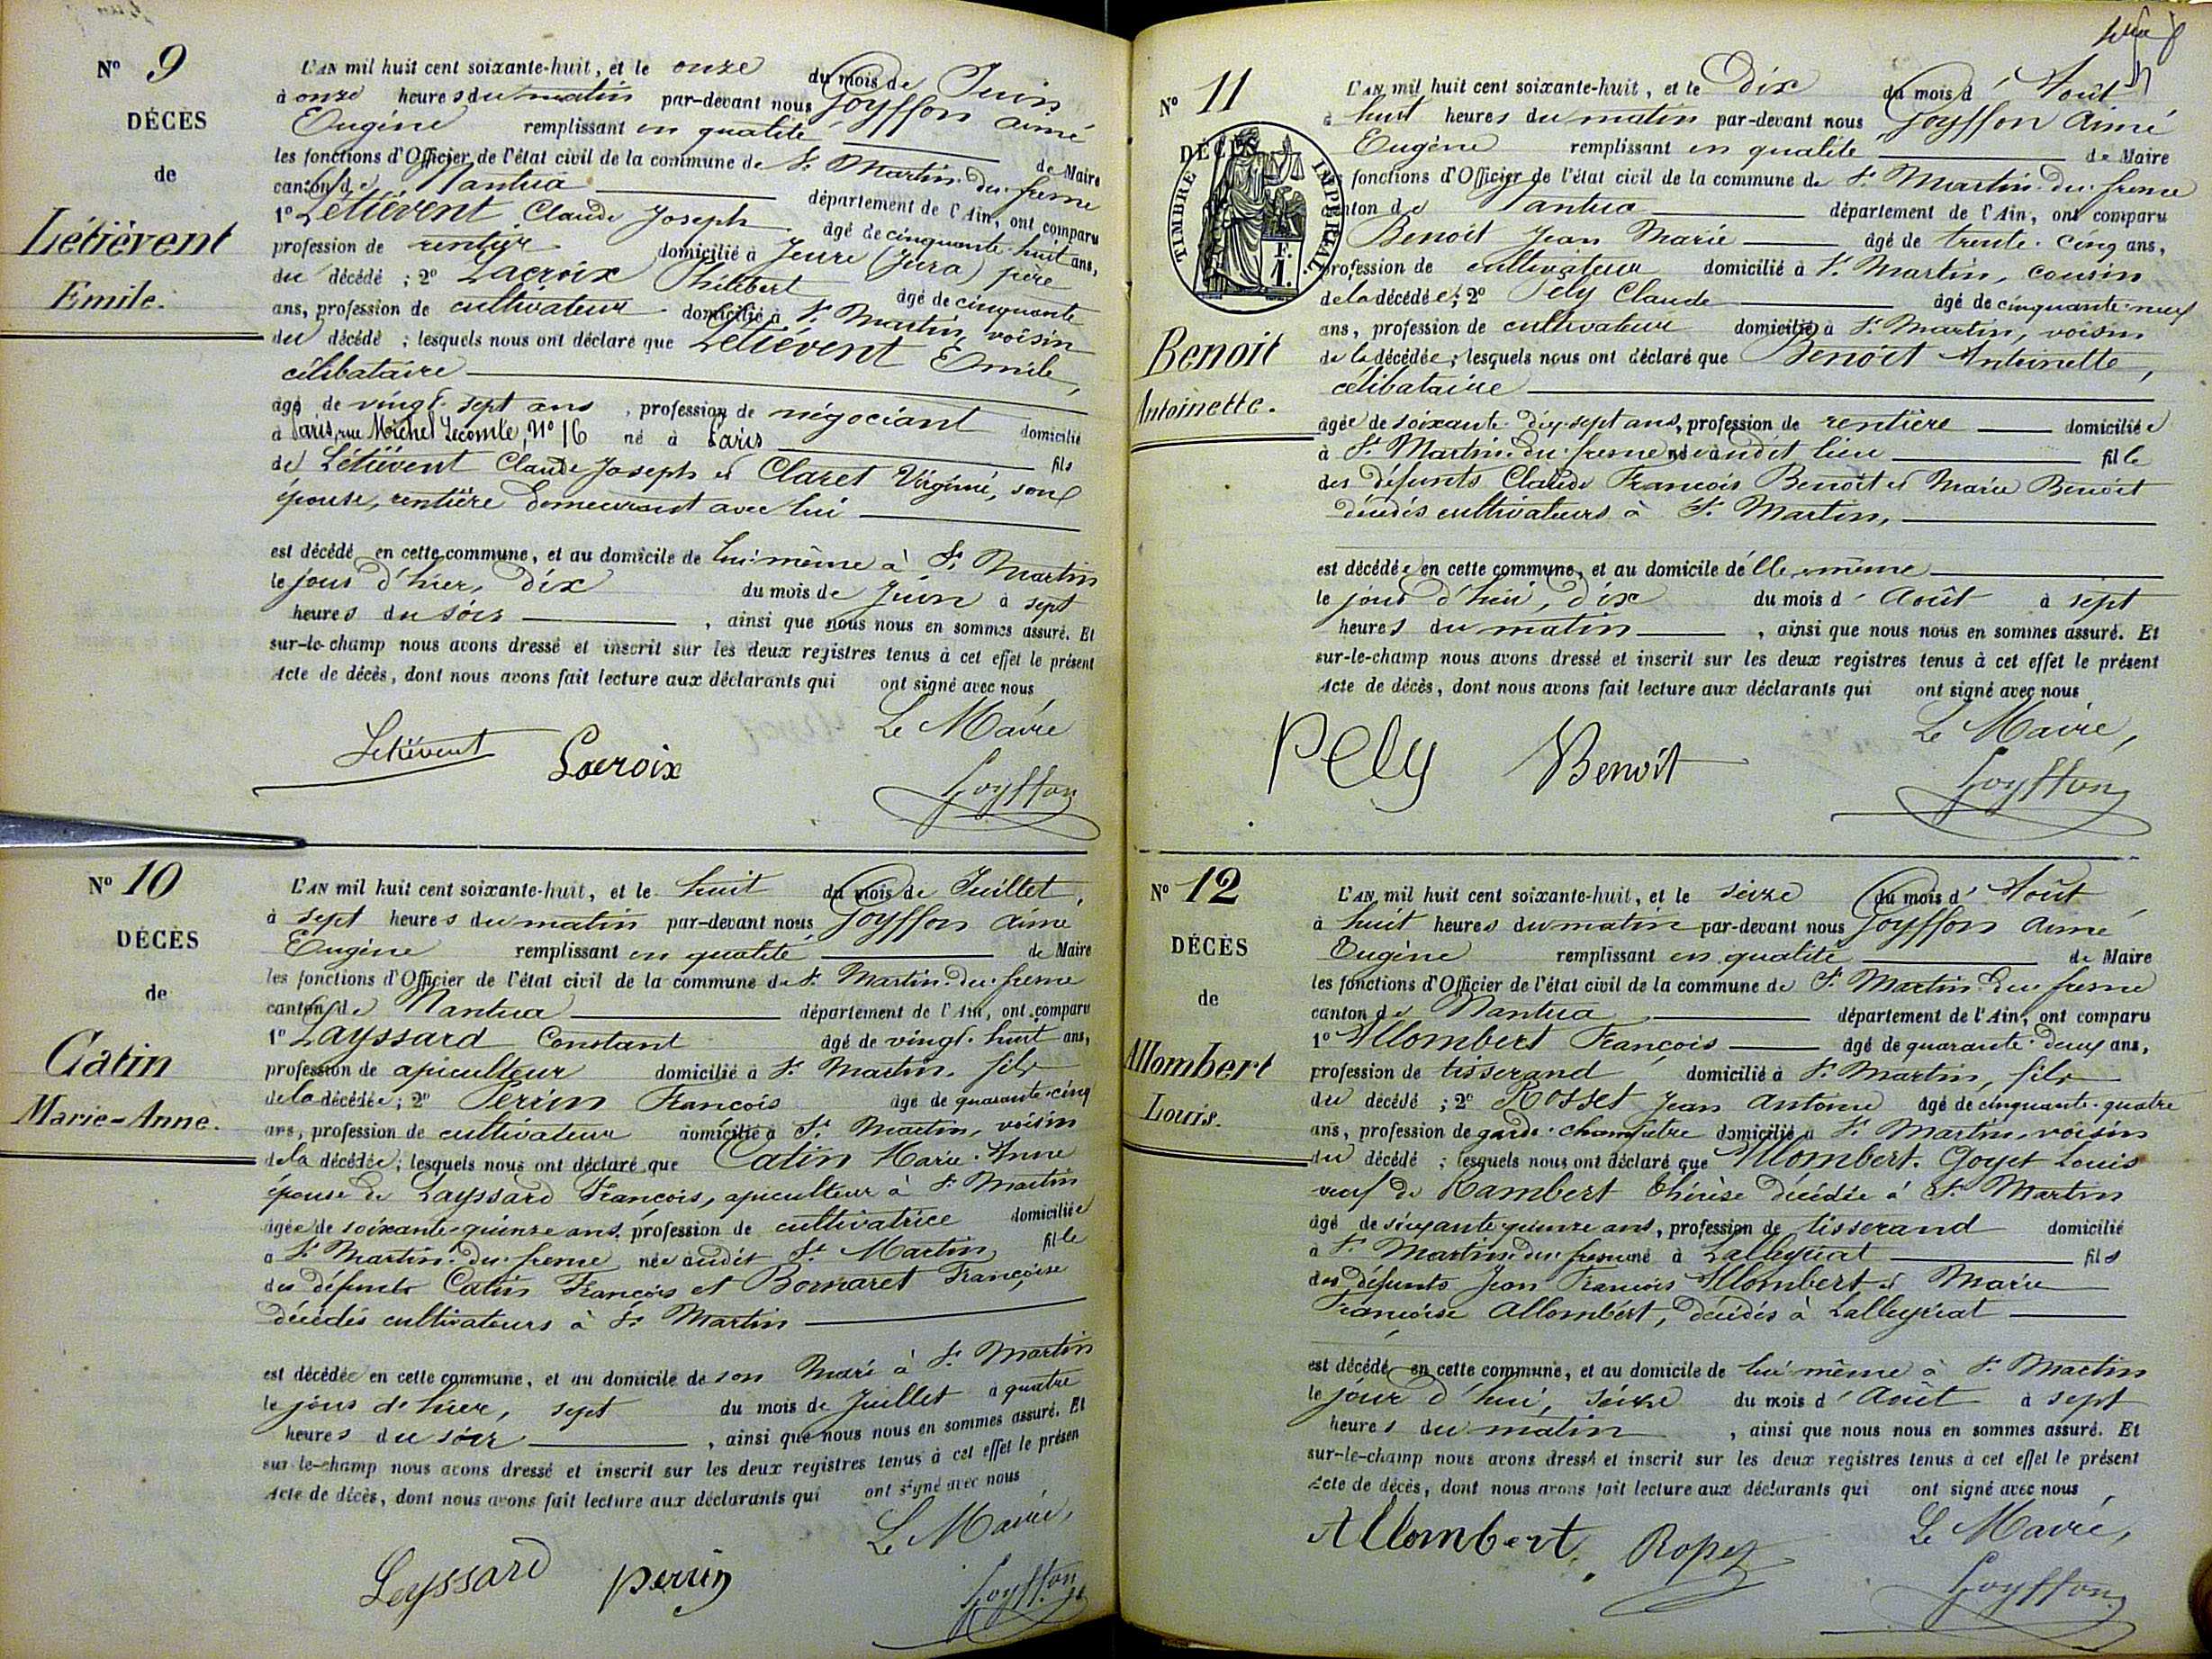 N° 9
DÉCÈS
de
Létiévent
Emile.
L'AN mil huit cent soixante-huit, et le onze du mois de Juin
à onze heures du matin par-devant nous Goyffon Aimé
Eugène remplissant en qualité de Maire
les fonctions d'Officier de l'état civil de la commune de St Martin-du-fresne
canton de Nantua département de l'Ain, ont comparu
1° Létiévent Claude Joseph âgé de cinquante-huit ans,
profession de rentier domicilié à Jeure (Jura) père
du décédé ; 2° Lacroix Philibert âgé de cinquante
ans, profession de cultivateur domicilié à St Martin, voisin
du décédé ; lesquels nous ont déclaré que Létiévent Emile,
célibataire
âgé de vingt-sept ans, profession de négociant domicilié
à Paris, rue Michel Lecomte, N° 16 né à Paris fils
de Létiévent Claude Joseph et Claret Virginie, son
épouse, rentière demeurant avec lui
est décédé en cette commune, et au domicile de lui-même à St Martin
le jour d'hier, dix du mois de Juin à sept
heures du soir , ainsi que nous nous en sommes assuré. Et
sur-le-champ nous avons dressé et inscrit sur les deux registres tenus à cet effet le présent
Acte de décès, dont nous avons fait lecture aux déclarants qui ont signé avec nous
Le Maire
Létiévent Lacroix
Goyffon
N° 10
DÉCÈS
de
Catin
Marie-Anne.
L'AN mil huit cent soixante-huit, et le huit du mois de Juillet,
à sept heures du matin par-devant nous Goyffon Aimé
Eugène remplissant en qualité de Maire
les fonctions d'Officier de l'état civil de la commune de St Martin-du-fresne
canton de Nantua département de l'Ain, ont comparu
1° Layssard Constant âgé de vingt-huit ans,
profession de apiculteur domicilié à St Martin, fils
de la décédée ; 2° Perrin François âgé de quarante-cinq
ans, profession de cultivateur domicilié à St Martin, voisin
de la décédée ; lesquels nous ont déclaré que Catin Marie-Anne
épouse de Layssard François, apiculteur à St Martin
âgée de soixante-quinze ans, profession de cultivatrice domiciliée
à St Martin-du-fresne née audit St Martin, fille
des défunts Catin François et Bornaret Françoise
décédés cultivateurs à St Martin
est décédée en cette commune, et au domicile de son Mari à St Martin
le jour d'hier, sept du mois de Juillet à quatre
heures du soir , ainsi que nous nous en sommes assuré. Et
sur-le-champ nous avons dressé et inscrit sur les deux registres tenus à cet effet le présen
Acte de décès, dont nous avons fait lecture aux déclarants qui ont signé avec nous
Le Maire,
Leyssard perrin
Goyffon
N° 11
DÉCÈS
TIMBRE IMPERIAL
F.
1.
Benoit
Antoinette.
L'AN mil huit cent soixante-huit, et le Dix du mois d'Août
à huit heures du matin par-devant nous Goyffon Aimé
Eugène remplissant en qualité de Maire
fonctions d'Officier de l'état civil de la commune de St Martin-du-fresne
canton de Nantua département de l'Ain, ont comparu
Benoit Jean Marie âgé de trente-cinq ans,
profession de cultivateur domicilié à St Martin, cousin
de la décédée ; 2° Pely Claude âgé de cinquante-neuf
ans, profession de cultivateur domicilié à St Martin, voisin
de la décédée ; lesquels nous ont déclaré que Benoit Antoinette,
célibataire
âgée de soixante-dix-sept ans, profession de rentière domiciliée
à St Martin-du-fresne née audit lieu fille
des défunts Claude François Benoit et Marie Benoit
décédés cultivateurs à St Martin,
est décédée en cette commune, et au domicile d'elle-même
le jour d'hui, dix du mois d'Août à sept
heures du matin , ainsi que nous nous en sommes assuré. Et
sur-le-champ nous avons dressé et inscrit sur les deux registres tenus à cet effet le présent
Acte de décès, dont nous avons fait lecture aux déclarants qui ont signé avec nous
Le Maire,
Pely Benoit
Goyffon
N° 12
DÉCÈS
de
Allombert
Louis.
L'AN mil huit cent soixante-huit, et le seize du mois d'Août
à huit heures du matin par-devant nous Goyffon Aimé
Eugène remplissant en qualité de Maire
les fonctions d'Officier de l'état civil de la commune de St Martin-du-fresne
canton de Nantua département de l'Ain, ont comparu
1° Allombert François âgé de quarante-deux ans,
profession de tisserand domicilié à St Martin, fils
du décédé ; 2° Rosset Jean Antoine âgé de cinquante-quatre
ans, profession de garde-champêtre domicilié à St Martin, voisin
du décédé ; lesquels nous ont déclaré que Allombert-Goyet Louis
veuf de Rambert Thérèse décédée à St Martin
âgé de soixante-quinze ans, profession de tisserand domicilié
à St Martin-du-fresne né à Lalleyriat fils
des défunts Jean François Allombert et Marie
Françoise Allombert, décédés à Lalleyriat
est décédé en cette commune, et au domicile de lui-même à St Martin
le jour d'hui, seize du mois d'Août à sept
heures du matin , ainsi que nous nous en sommes assuré. Et
sur-le-champ nous avons dressé et inscrit sur les deux registres tenus à cet effet le présent
Acte de décès, dont nous avons fait lecture aux déclarants qui ont signé avec nous
Le Maire,
Allombert
Goyffon